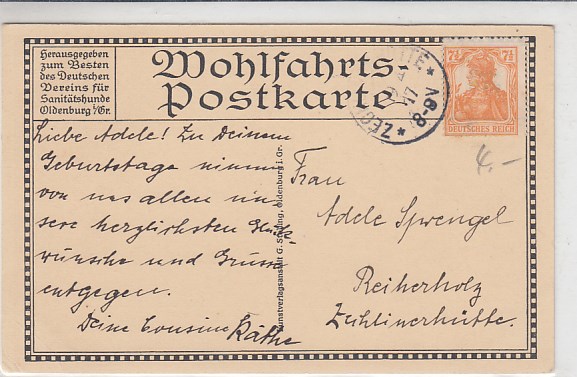 Herausgegeben
zum Besten
des Deutschen
Vereins für
Sanitätshunde
Oldenburg i/Gr.
Wohlfahrts-
Postkarte
7½ 7½
DEUTSCHES REICH
17
V.8-9
4.-
Liebe Adele! Zu Deinem
Geburtstage nimm
von uns allen un
sere herzlichsten Glück
wünsche und Grüsse
entgegen.
Deine Cousine Käthe
Kunstverlagsanstalt G. Stalling, Oldenburg i. Gr.
Frau
Adele Sprengel
Reiherholz
Zechlinerhütte.